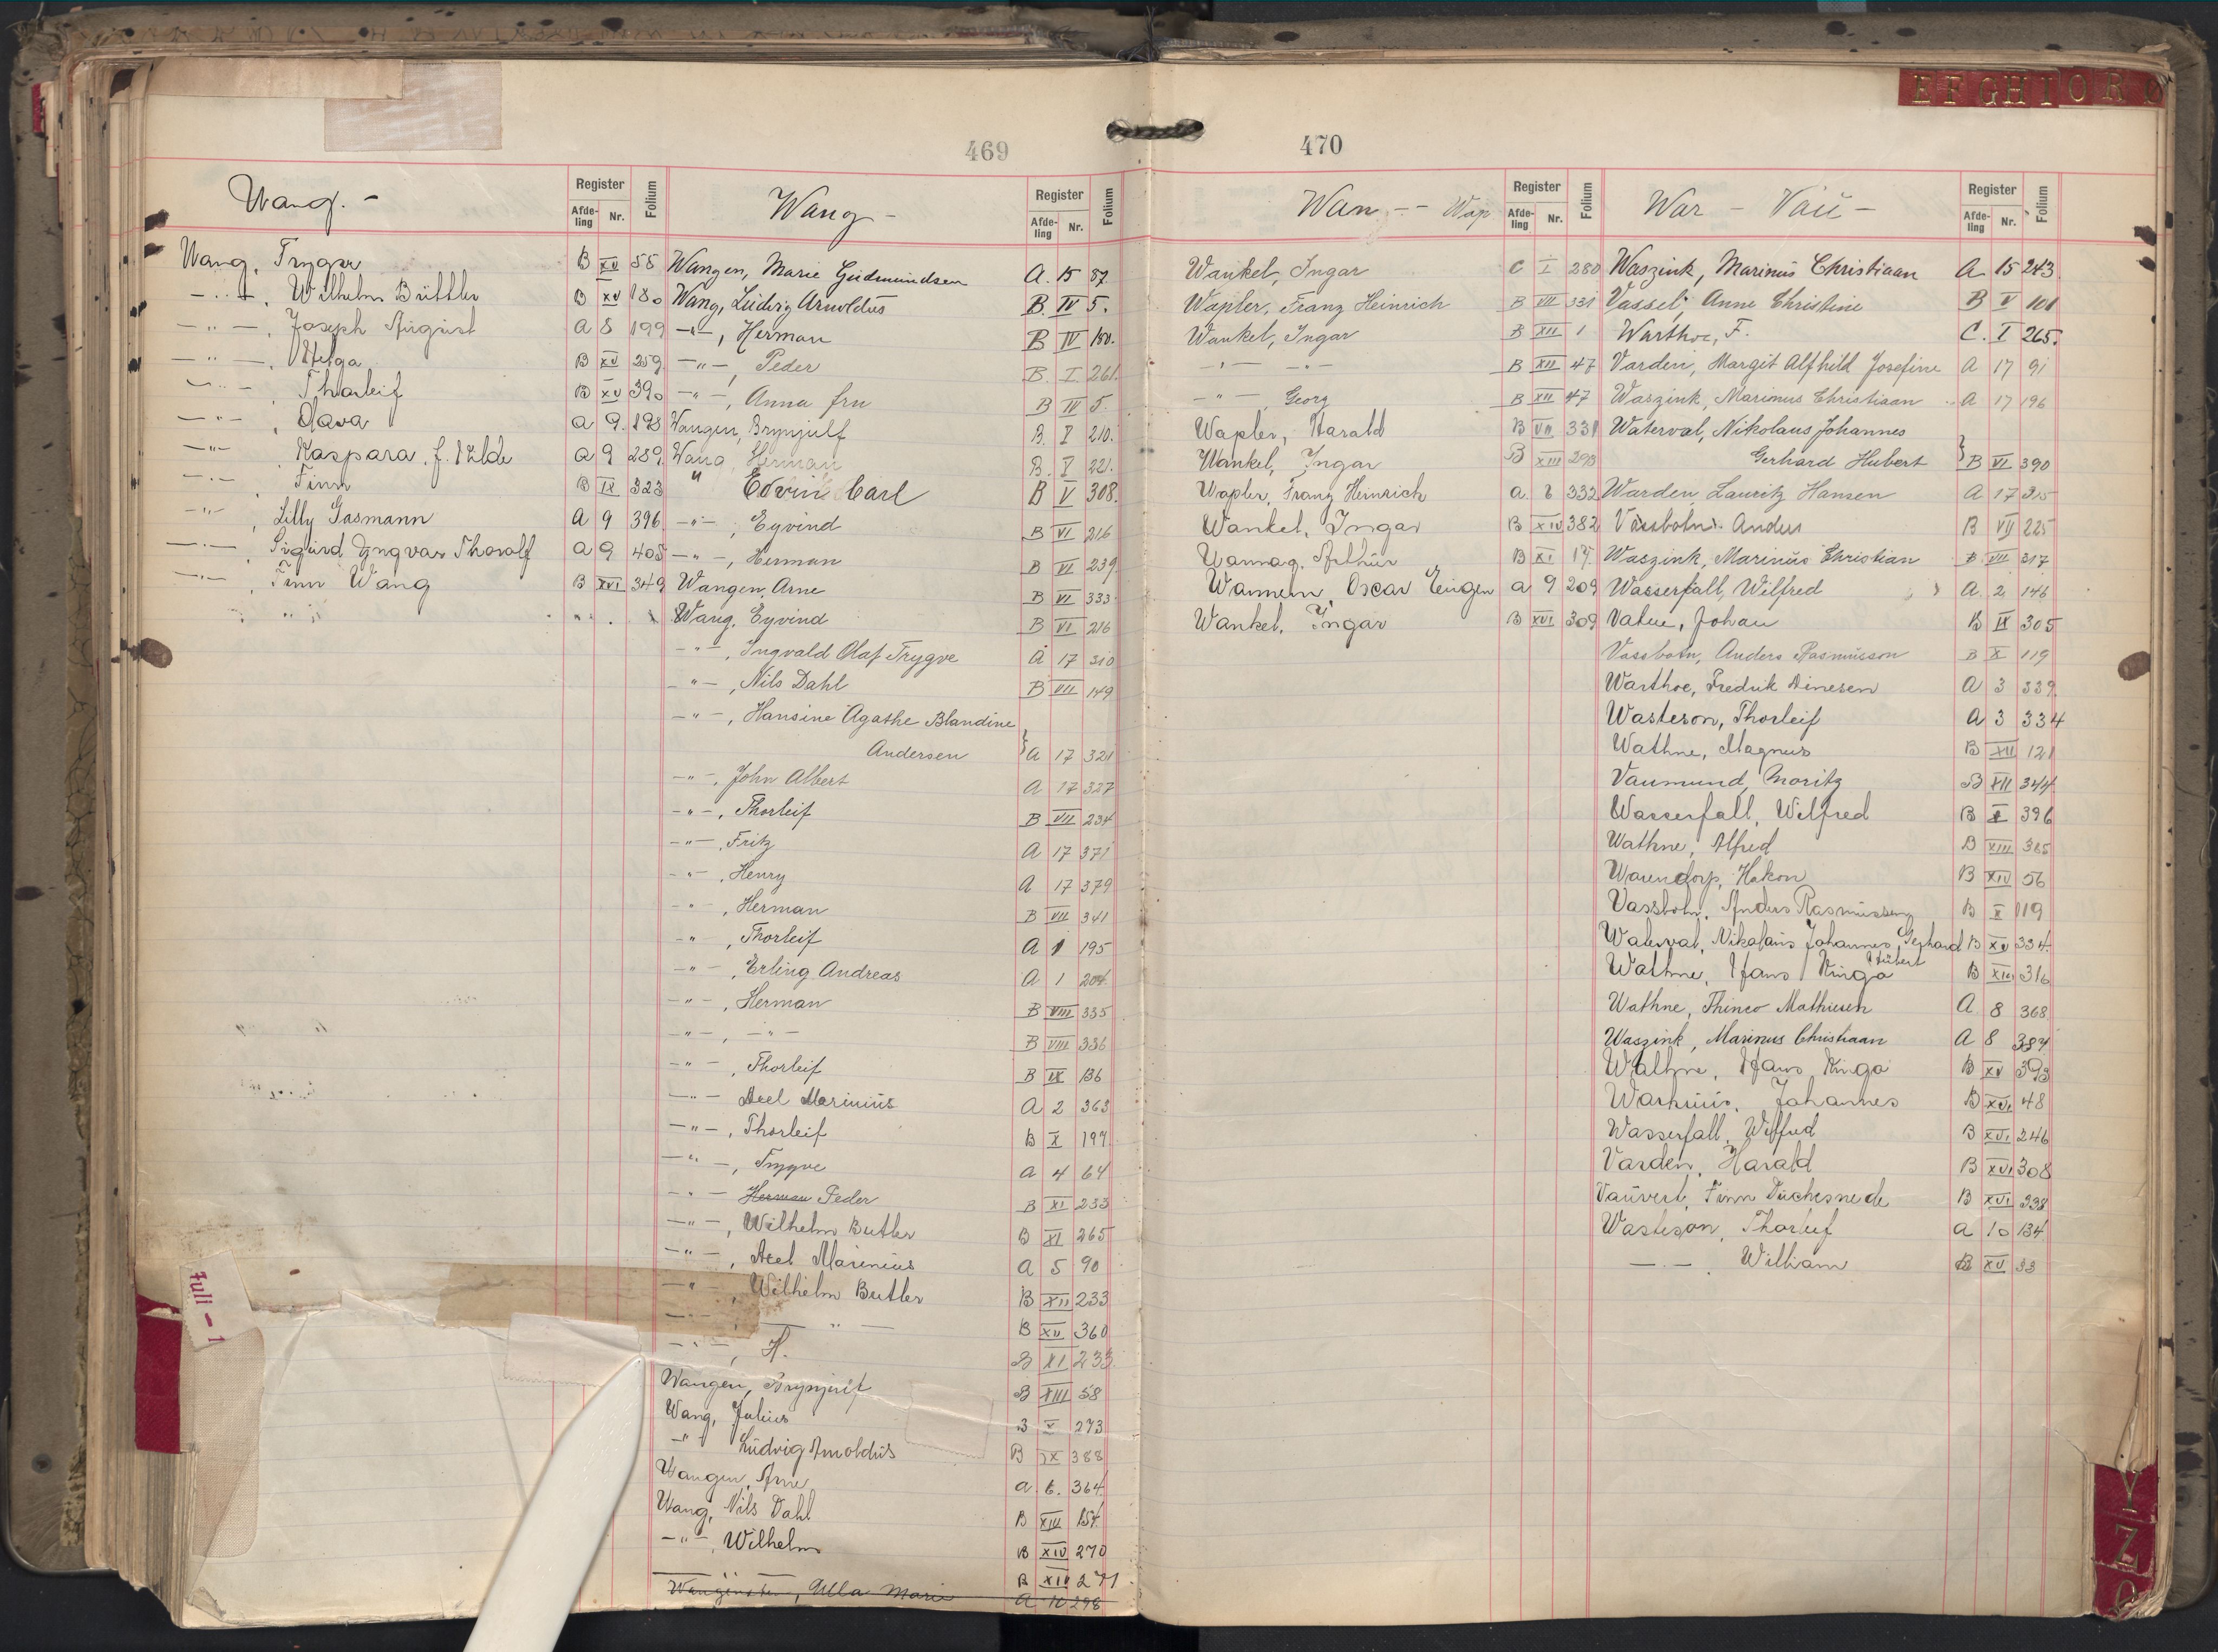 EFGHTORØ
469
Wang. -
Register
Afde-
ling
Nr.
Folium
Wang, Trygve B XV 58
-"-, Wilhelm Büttler B XV 180
-"-, Joseph August A 8 199
-"-, Helga B XV 259
-"-, Thorleif B XV 390
-"-, Olava A 9. 198
-"- Kaspara, f. A 9 289
-"-, Finn B IX 323
-"-, Lilly Gasmann A 9 396
-"-, Sigurd Yngvar Thoralf A 9 405
-"-, Finn Wang B XVI 349
Wang -
Register
Afde-
ling
Nr.
Folium
Wangen, Marie Gudmundsen A. 15 87.
Wang, Ludvig Arnoldus B. IV 5.
-"-, Herman B IV 150.
-"-, Peder B. I 261.
-"-, Anna fru B IV 5.
Wangen, Brynjulf B. I 210.
Wang, Herman B. V 221.
" Edvin Carl B V 308.
-"-, Eyvind B VI 216
-"-, Herman B VI 239
Wangen, Arne B VI 333
Wang, Eyvind B VI 216
-"-, Ingvald Olaf Trygve A 17 310
-"-, Nils Dahl B VII 149
-"-, Hansine Agathe Blandine
Andersen } A 17 321
-"-, John Albert A 17 327
-"-, Thorleif B VII 234
-"-, Fritz A 17 371
-"-, Henry A 17 379
-"-, Herman B VII 341
-"-, Thorleif A 1 195
-"-, Erling Andreas A 1 204
-"-, Herman B VIII 335
-"-, -"- B VIII 336
-"-, Thorleif B IX 136
-"- Axel Marinius A 2 363
-"-, Thorleif B X 197
-"-, Trygve A 4 64
-"- Herman Peder B XI 233
-"-, Wilhelm Butler B XI 265
-"-, Axel Marinius A 5 90
-"-, Wilhelm Butler B XII 233
-"-, -"- B XII 360
-"-, H. B XI 233
Wangen, Brynjulf B XIII 58
Wang, Julius B V 273
-"- Ludvig Arnoldus B IX 388
Wangen, Arne A 6. 364
Wang, Nils Dahl B XIII 154
-"-, Wilhelm B XIV 270
B XIV 271
Wangensten, Ulla Marie A 10 298
Juli-1
470
Wan -- Wap
Register
Afde-
ling
Nr.
Folium
Wankel, Ingar C I 280
Wapler, Franz Heinrich B VII 331
Wankel, Ingar B XII 1
-"- -"- B XII 47
-"- Georg B XII 47
Wapler, Harald B VII 331
Wankel, Ingar B XIII 293
Wapler, Franz Heinrich A. 6 332
Wankel, Ingar B XIV 382
Wannag, Arthur B XI 17
Wannem, Oscar Eugen A 9 209
Wankel, Ingar B XVI 309
War - Vau -
Register
Afde-
ling
Nr.
Folium
Waszink, Marinus Christiaan A 15 243
Vassel, Anne Christine B V 101
Warthoe, F. C. I 265.
Varden, Margit Alfhild Josefine A 17 91
Waszink, Marinus Christiaan A 17 196
Waterval, Nikolaus Johannes
Gerhard Hubert } B VI 390
Warden Lauritz Hansen A 17 315
Vassbotn, Anders B VII 225
Waszink, Marinus Christian B VII 317
Wasserfall, Wilfred A 2 146
Vatne, Johan B IX 305
Vassbotn, Anders Rasmusson B X 119
Warthoe, Fredrik Dinesen A 3 339
Wasteson, Thorleif A 3 334
Wathne, Magnus B XII 121
Vaumund, Moritz B XII 344
Wasserfall, Wilfred B X 396
Wathne, Alfred B XIII 365
Warendorp, Hakon B XIV 56
Vassbotn, Anders Rasmussen B X 119
Waterval, Nikolaus Johannes Gerhard B XV 334
Hubert
Wathne, Hans Kinga B XIV 316
Wathne, Thinco Mathiesen A 8 368
Waszink, Marinus Christiaan A 8 384
Wathne, Hans Kinga B XV 393
Warhuus, Johannes B XVI 48
Wasserfall, Wilfred B XVI 246
Varden, Harald B XVI 308
Vauvert, Finn Duchesne de B XVI 338
Wasteson, Thorleif A 10 134
-"- William B XV 33
Y
Z